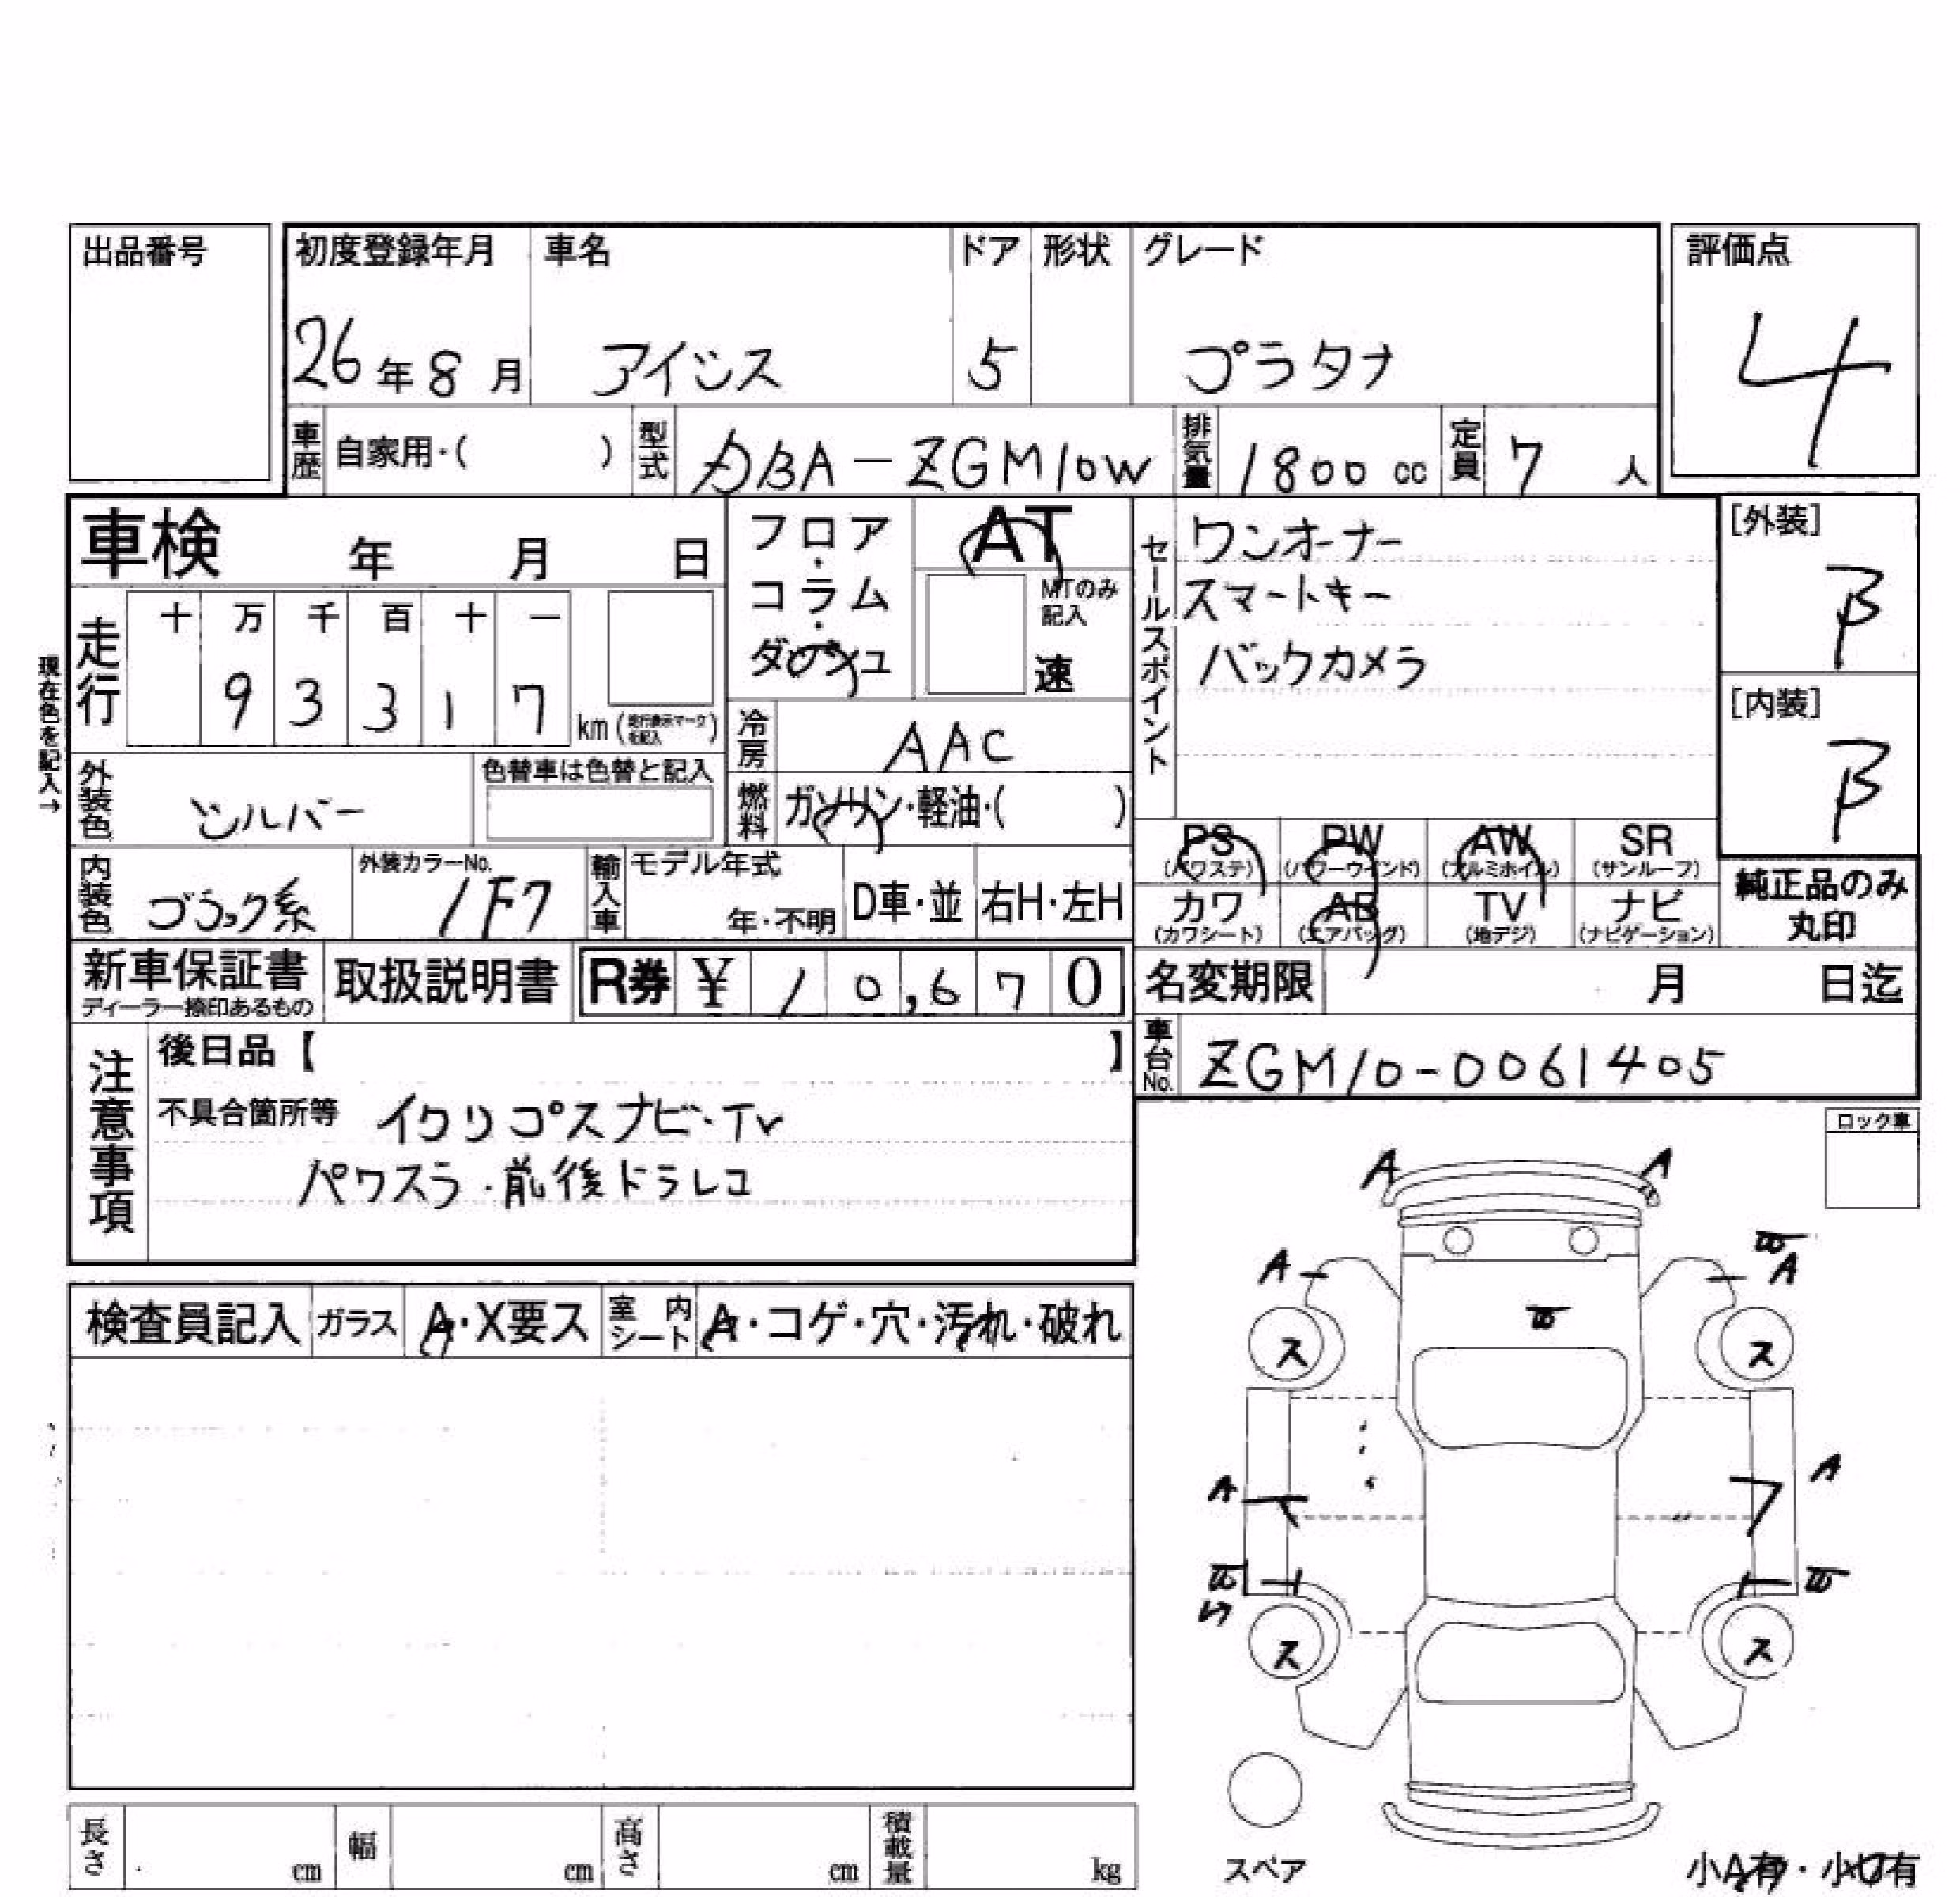 出品番号
初度登録年月 車名 ドア 形状 グレード 評価点
26年8月 アイシス 5 プラタナ 4
車歴 自家用・( ) 型式 DBA-ZGM10W 排気量 1800cc 定員 7人
車検 年 月 日
フロア・コラム・ダッシュ
AT
MTのみ記入
速
セールスポイント
ワンオーナー
スマートキー
バックカメラ
[外装]
B
[内装]
B
現在色を記入→
走行 十 万 千 百 十 一
9 3 3 1 7 km(走行表示マークを記入)
冷房 AAC
外装色 シルバー 色替車は色替と記入
燃料 ガソリン・軽油・( )
PS(パワステ) PW(パワーウインド) AW(アルミホイル) SR(サンルーフ)
カワ(カワシート) AB(エアバッグ) TV(地デジ) ナビ(ナビゲーション)
純正品のみ丸印
内装色 ブラック系 外装カラーNo. 1F7 輸入車 モデル年式 年・不明 D車・並 右H・左H
新車保証書 ディーラー捺印あるもの 取扱説明書 R券 ¥ 1 0,6 7 0
名変期限 月 日迄
車台No. ZGM10-0061405
注意事項
後日品【 】
不具合箇所等 イクリプスナビ・TV
パワスラ・前後ドラレコ
ロック車
検査員記入 ガラス A・X要ス 室内シート A・コゲ・穴・汚れ・破れ
A A
A A
ス ス
A A
ス ス
スペア
小A有・小U有
長さ cm 幅 cm 高さ cm 積載量 kg